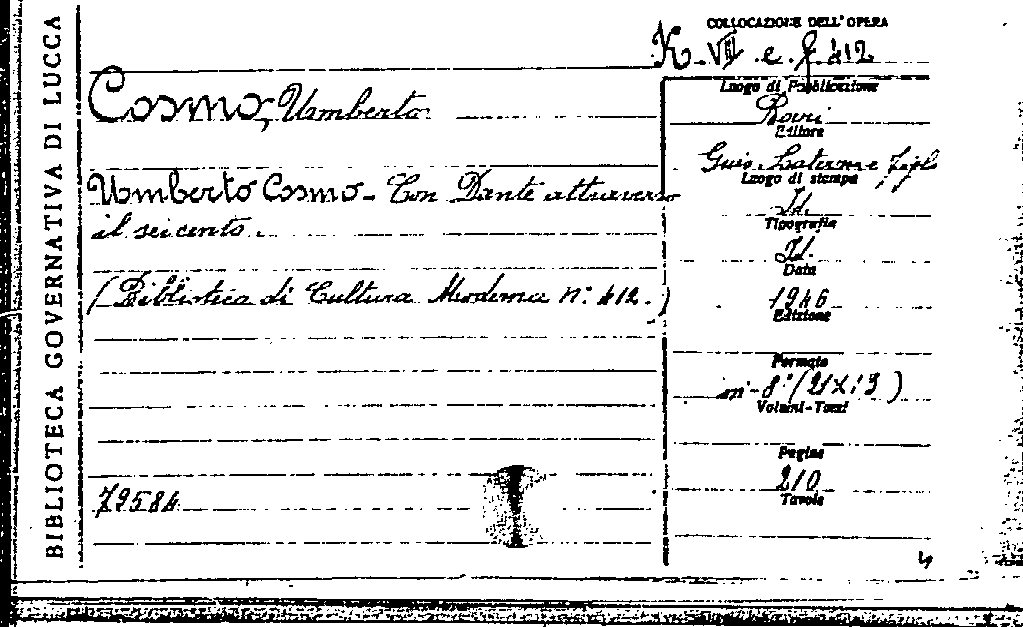 BIBLIOTECA GOVERNATIVA DI LUCCA
COLLOCAZIONE DELL'OPERA
K. VIII. e. f. 412
Cosmo, Umberto
Umberto Cosmo - Con Dante attraverso
il seicento.
(Biblioteca di Cultura Moderna n. 412.)
79584
Luogo di Pubblicazione
Bari
Editore
Gius. Laterza e figli
Luogo di stampa
Id.
Tipografia
Id.
Data
1946
Edizione
Formato
in-8° (21x13)
Volumi-Tomi
Pagine
210
Tavole